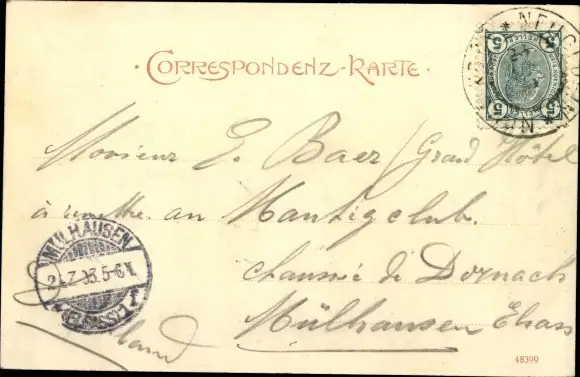 CORRESPONDENZ-KARTE.
5 5
5 5
Monsieur E. Baer / Grand Hôtel
à remettre au Nautigclub.
chaussée de Dornach
Mülhausen Elsass
MÜLHAUSEN
5-6N.
(ELSASS) 1
48399